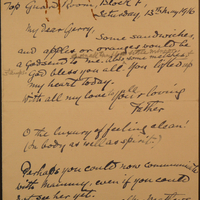 Top Guard Room, Block F,
Saturday, 13th May 1916
My dear Gerry,
Some sandwiches,
and apples or oranges would be
a Godsend to me. Also some
God bless you all. You lighted up
my heart today.
With all my love, loving
Father
O the luxury of feeling clean!
(In body as well as spirit).
Perhaps you could now communicate
with mammy, even if you could
not see her yet.